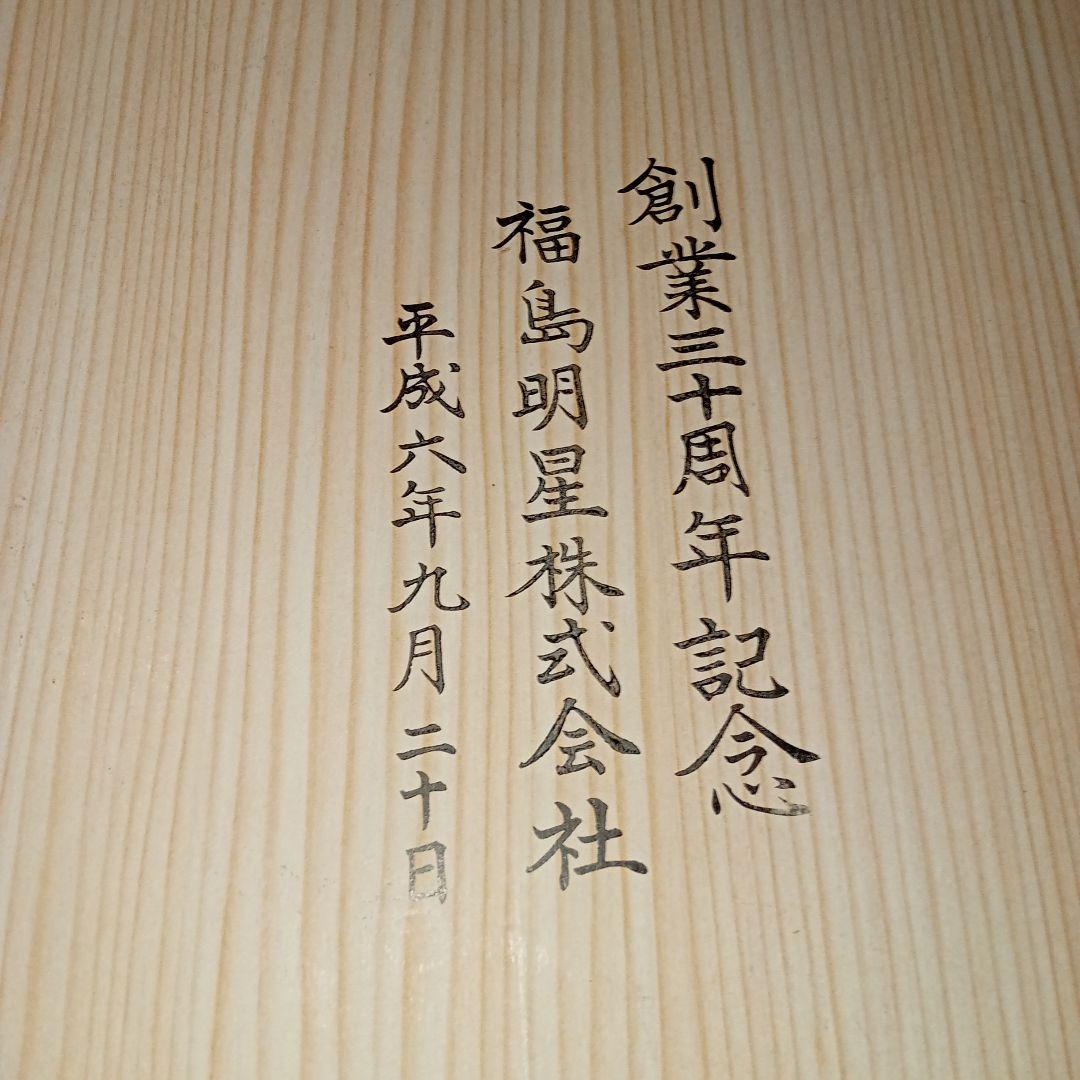 創業三十周年記念
福島明星株式会社
平成六年九月二十日